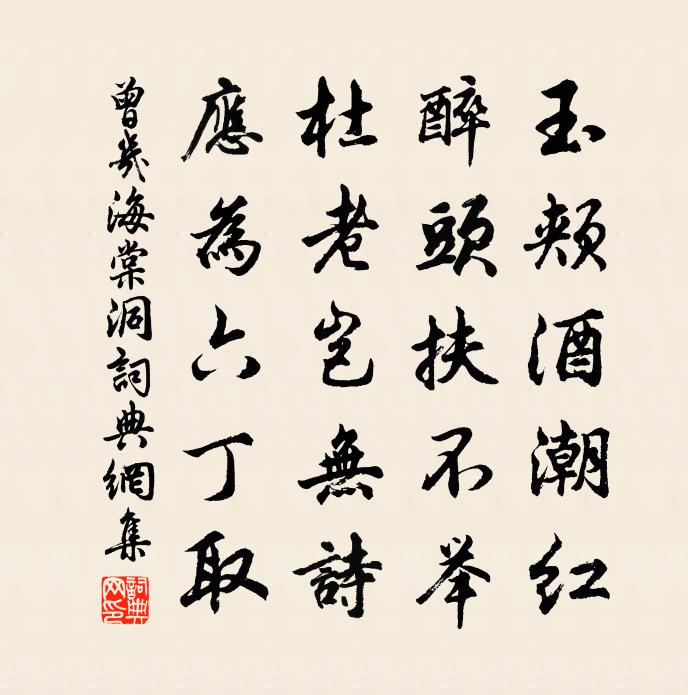 玉頰酒潮紅
醉頭扶不举
杜老豈無詩
應為六丁取
曾幾海棠洞詞典網集
詞典網印